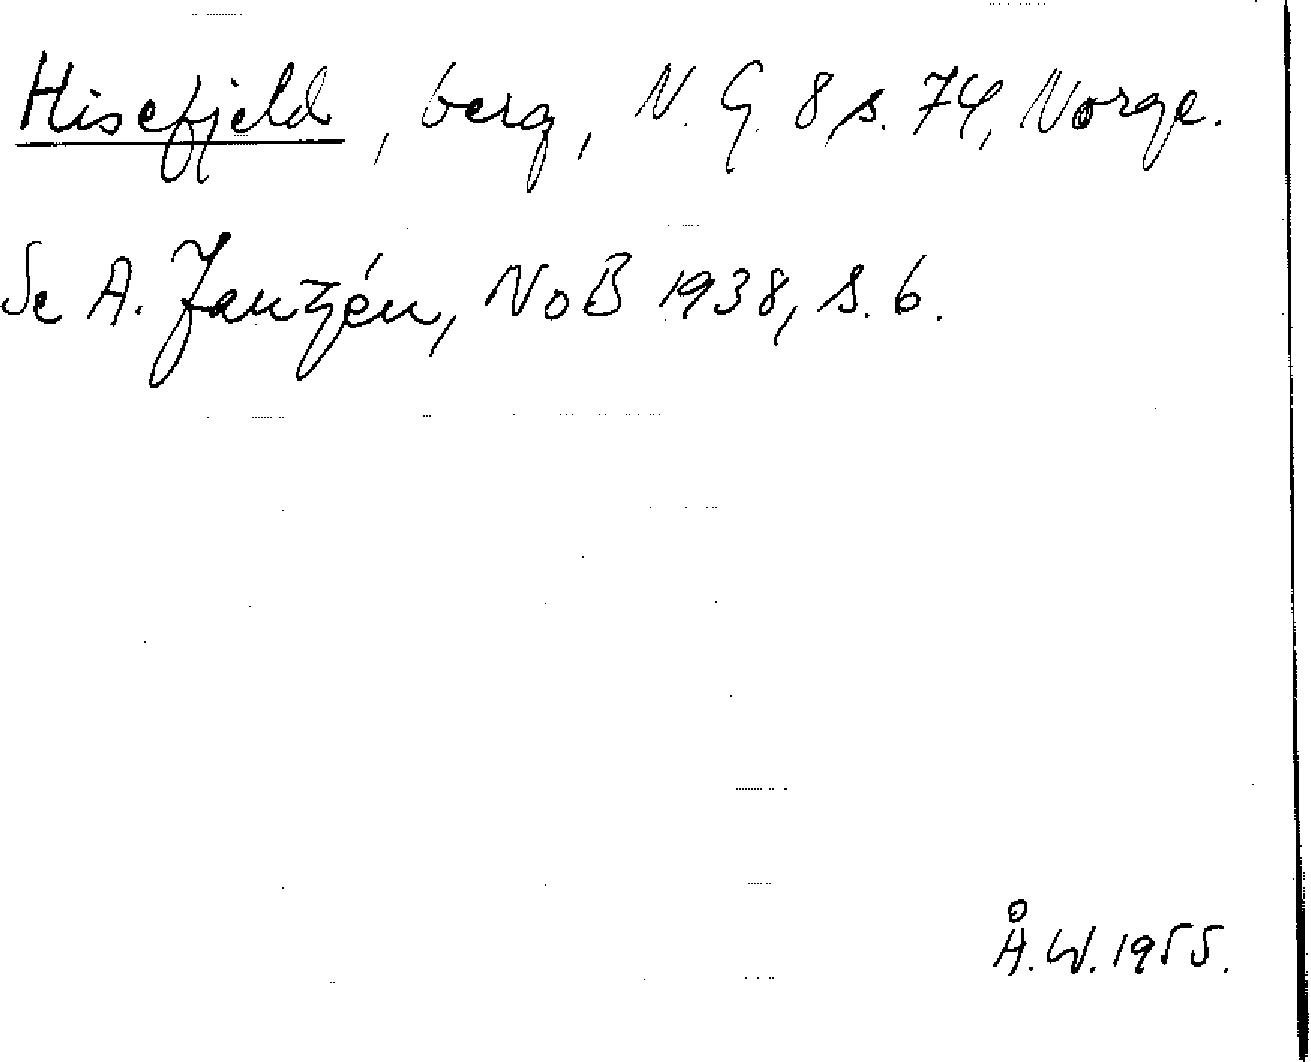 Hisefjeld, berg, N.G. 8, s. 74, Norge.
Se A. Janzén, NoB 1938, s. 6.
Å.W. 1955.